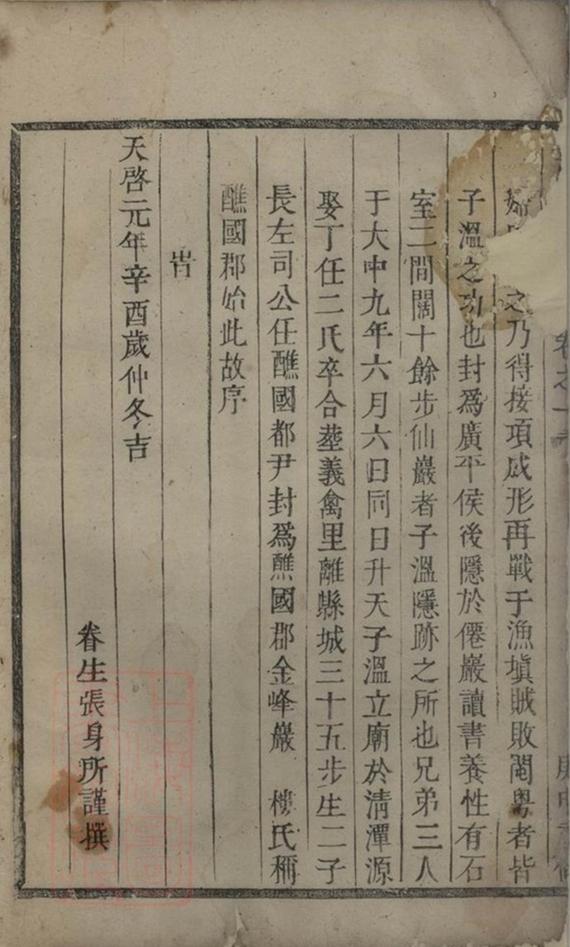 卷之一
之乃得接項成形再戰于漁塡賊敗閩粤者皆
子溫之功也封爲廣平侯後隱於僊巖讀書養性有石
室二間闊十餘步仙巖者子溫隱跡之所也兄弟三人
于大中九年六月六日同日升天子溫立廟於清潭源
娶丁任二氏卒合塟義禽里離縣城三十五步生二子
長左司公任醮國都尹封爲醮國郡金峰巖 樓氏稱
醮國郡始此故序
旹
天啓元年辛酉歲仲冬吉
眷生張身所謹撰